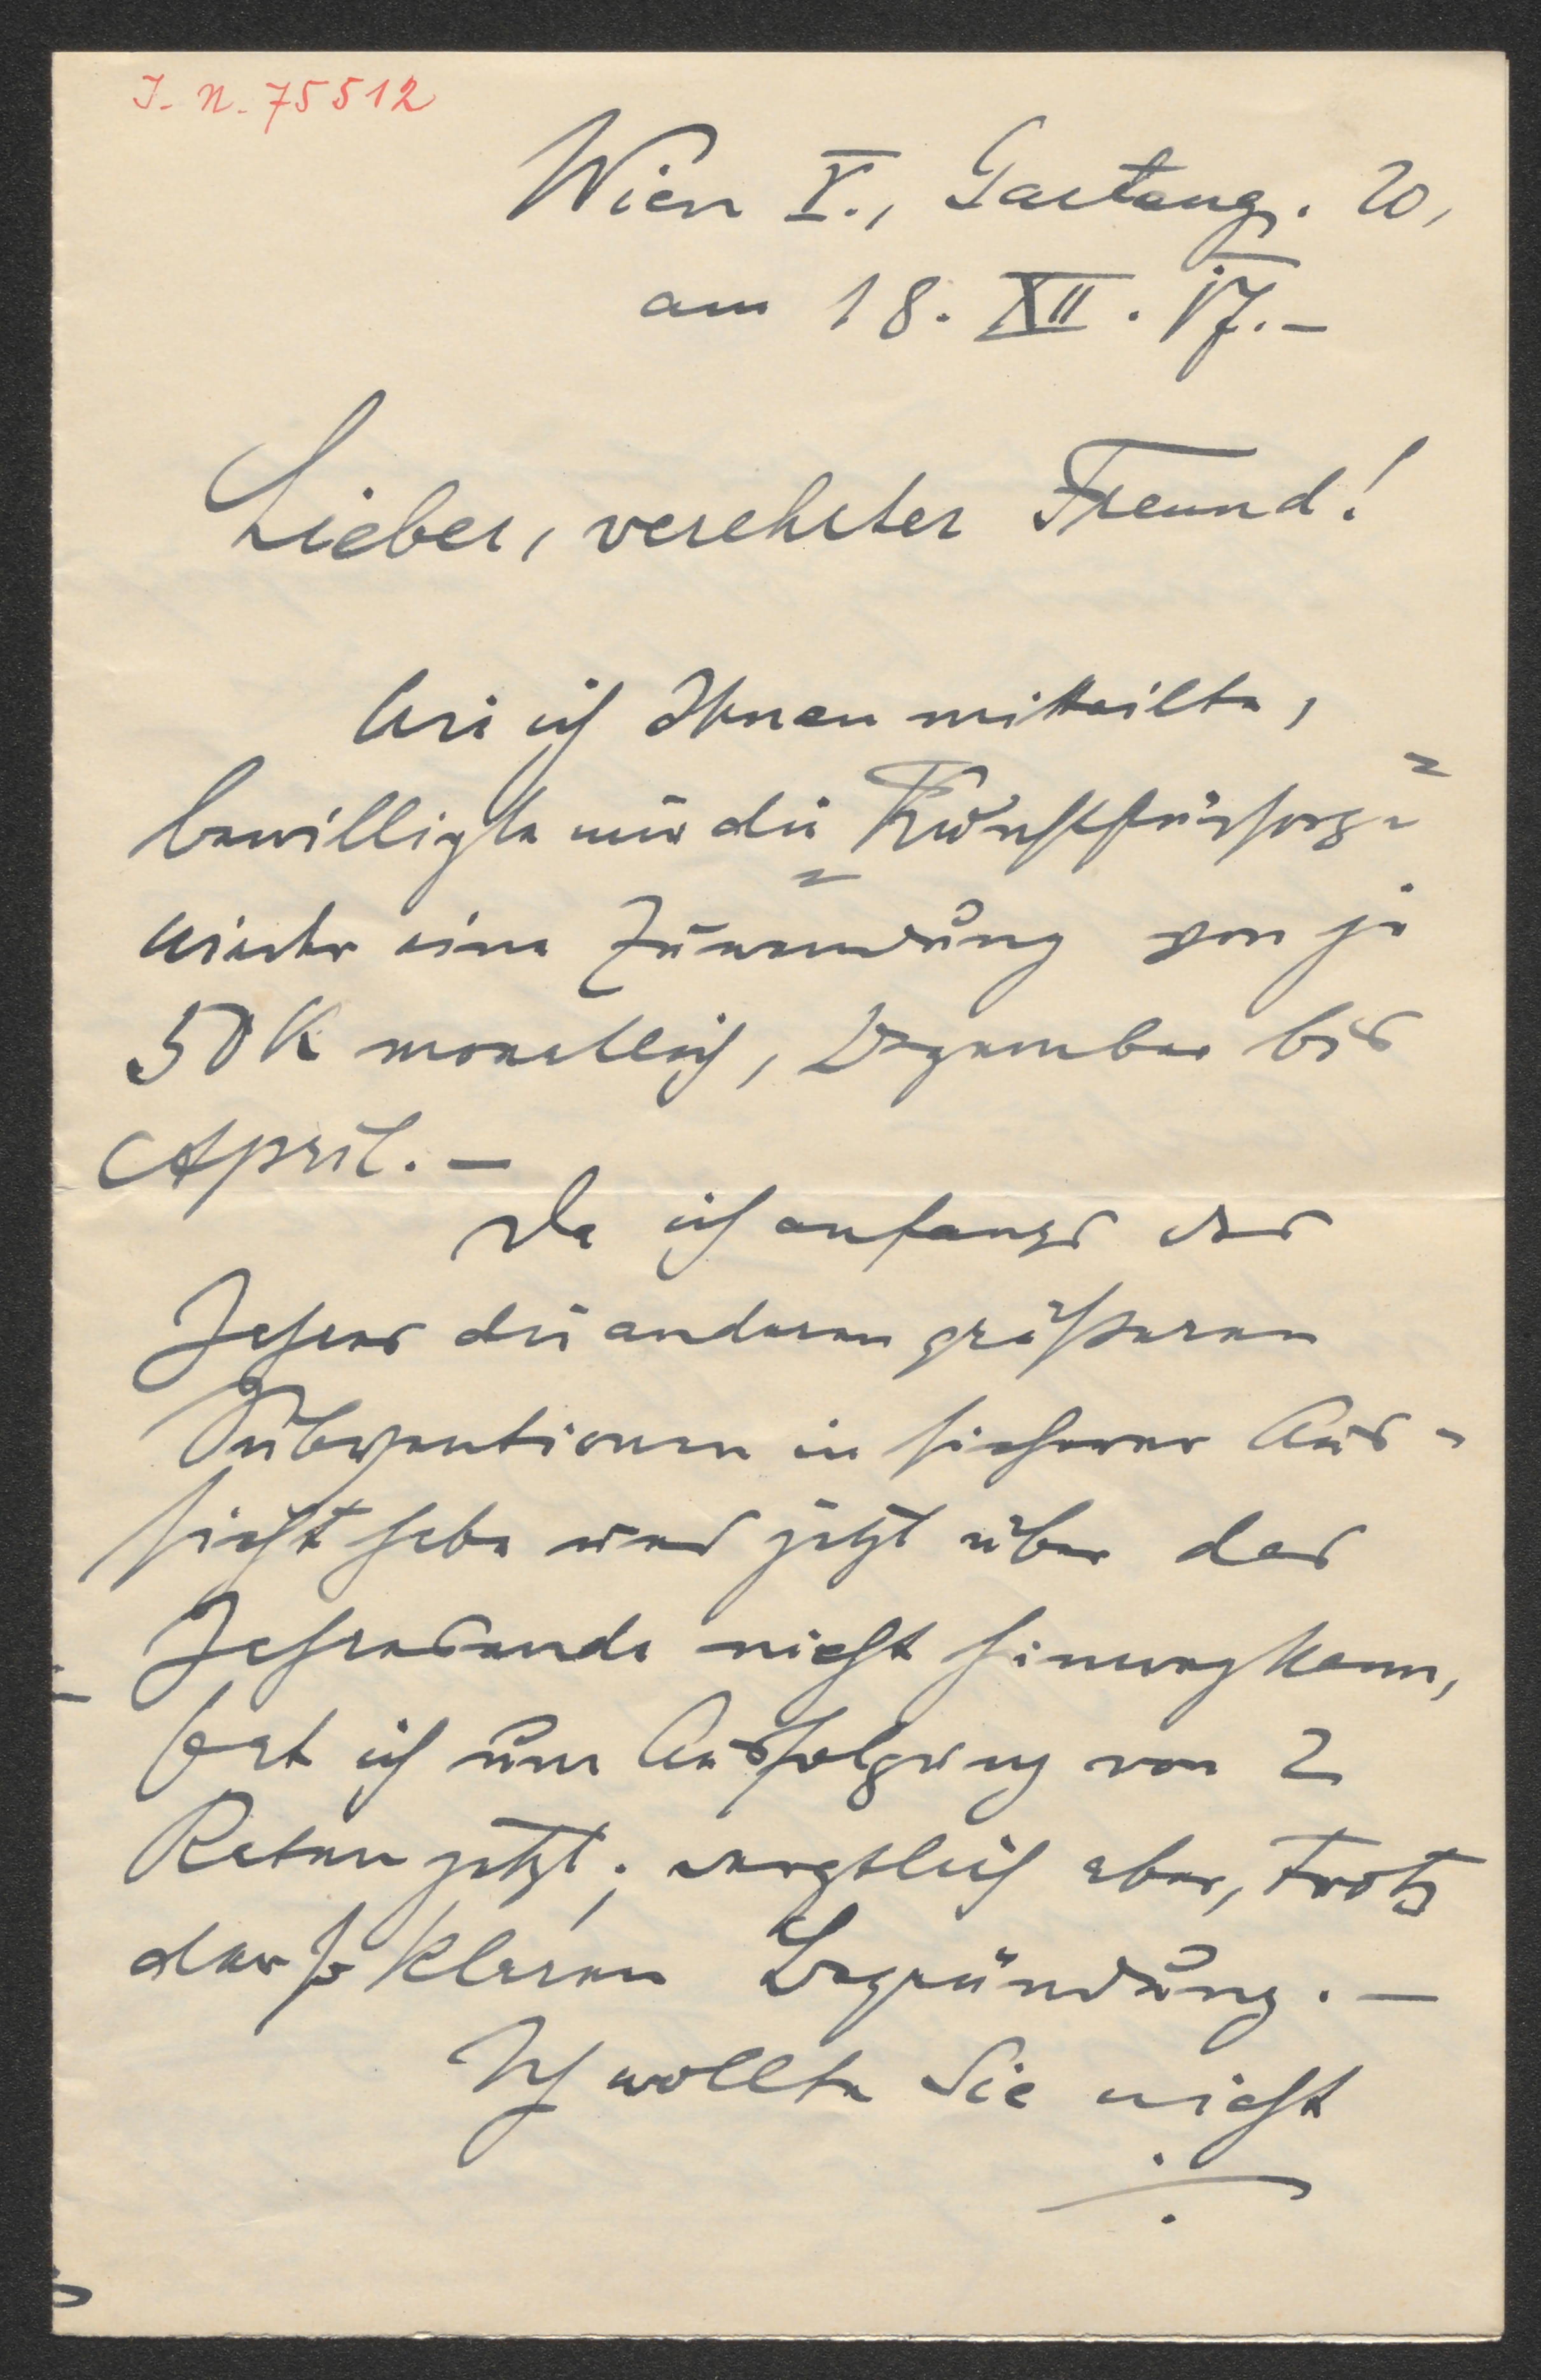 I. N. 75512
Wien V., Garteng. 20,
am 18. XII. 17. –
Lieber, verehrter Freund!
Wie ich Ihnen mitteilte,
bewilligte mir die "Kunstfürsorge"
wieder eine Zuwendung von je
50 K monatlich, Dezember bis
April. –
Da ich anfangs des
Jahres die anderen größeren
Subventionen in sicherer Aus-
sicht habe und jetzt über das
Jahresende nicht hinwegkann,
bat ich um Ausfolgung von 2
Raten jetzt; vergeblich aber, trotz
der so klaren Begründung. –
Ich wollte Sie nicht
./.